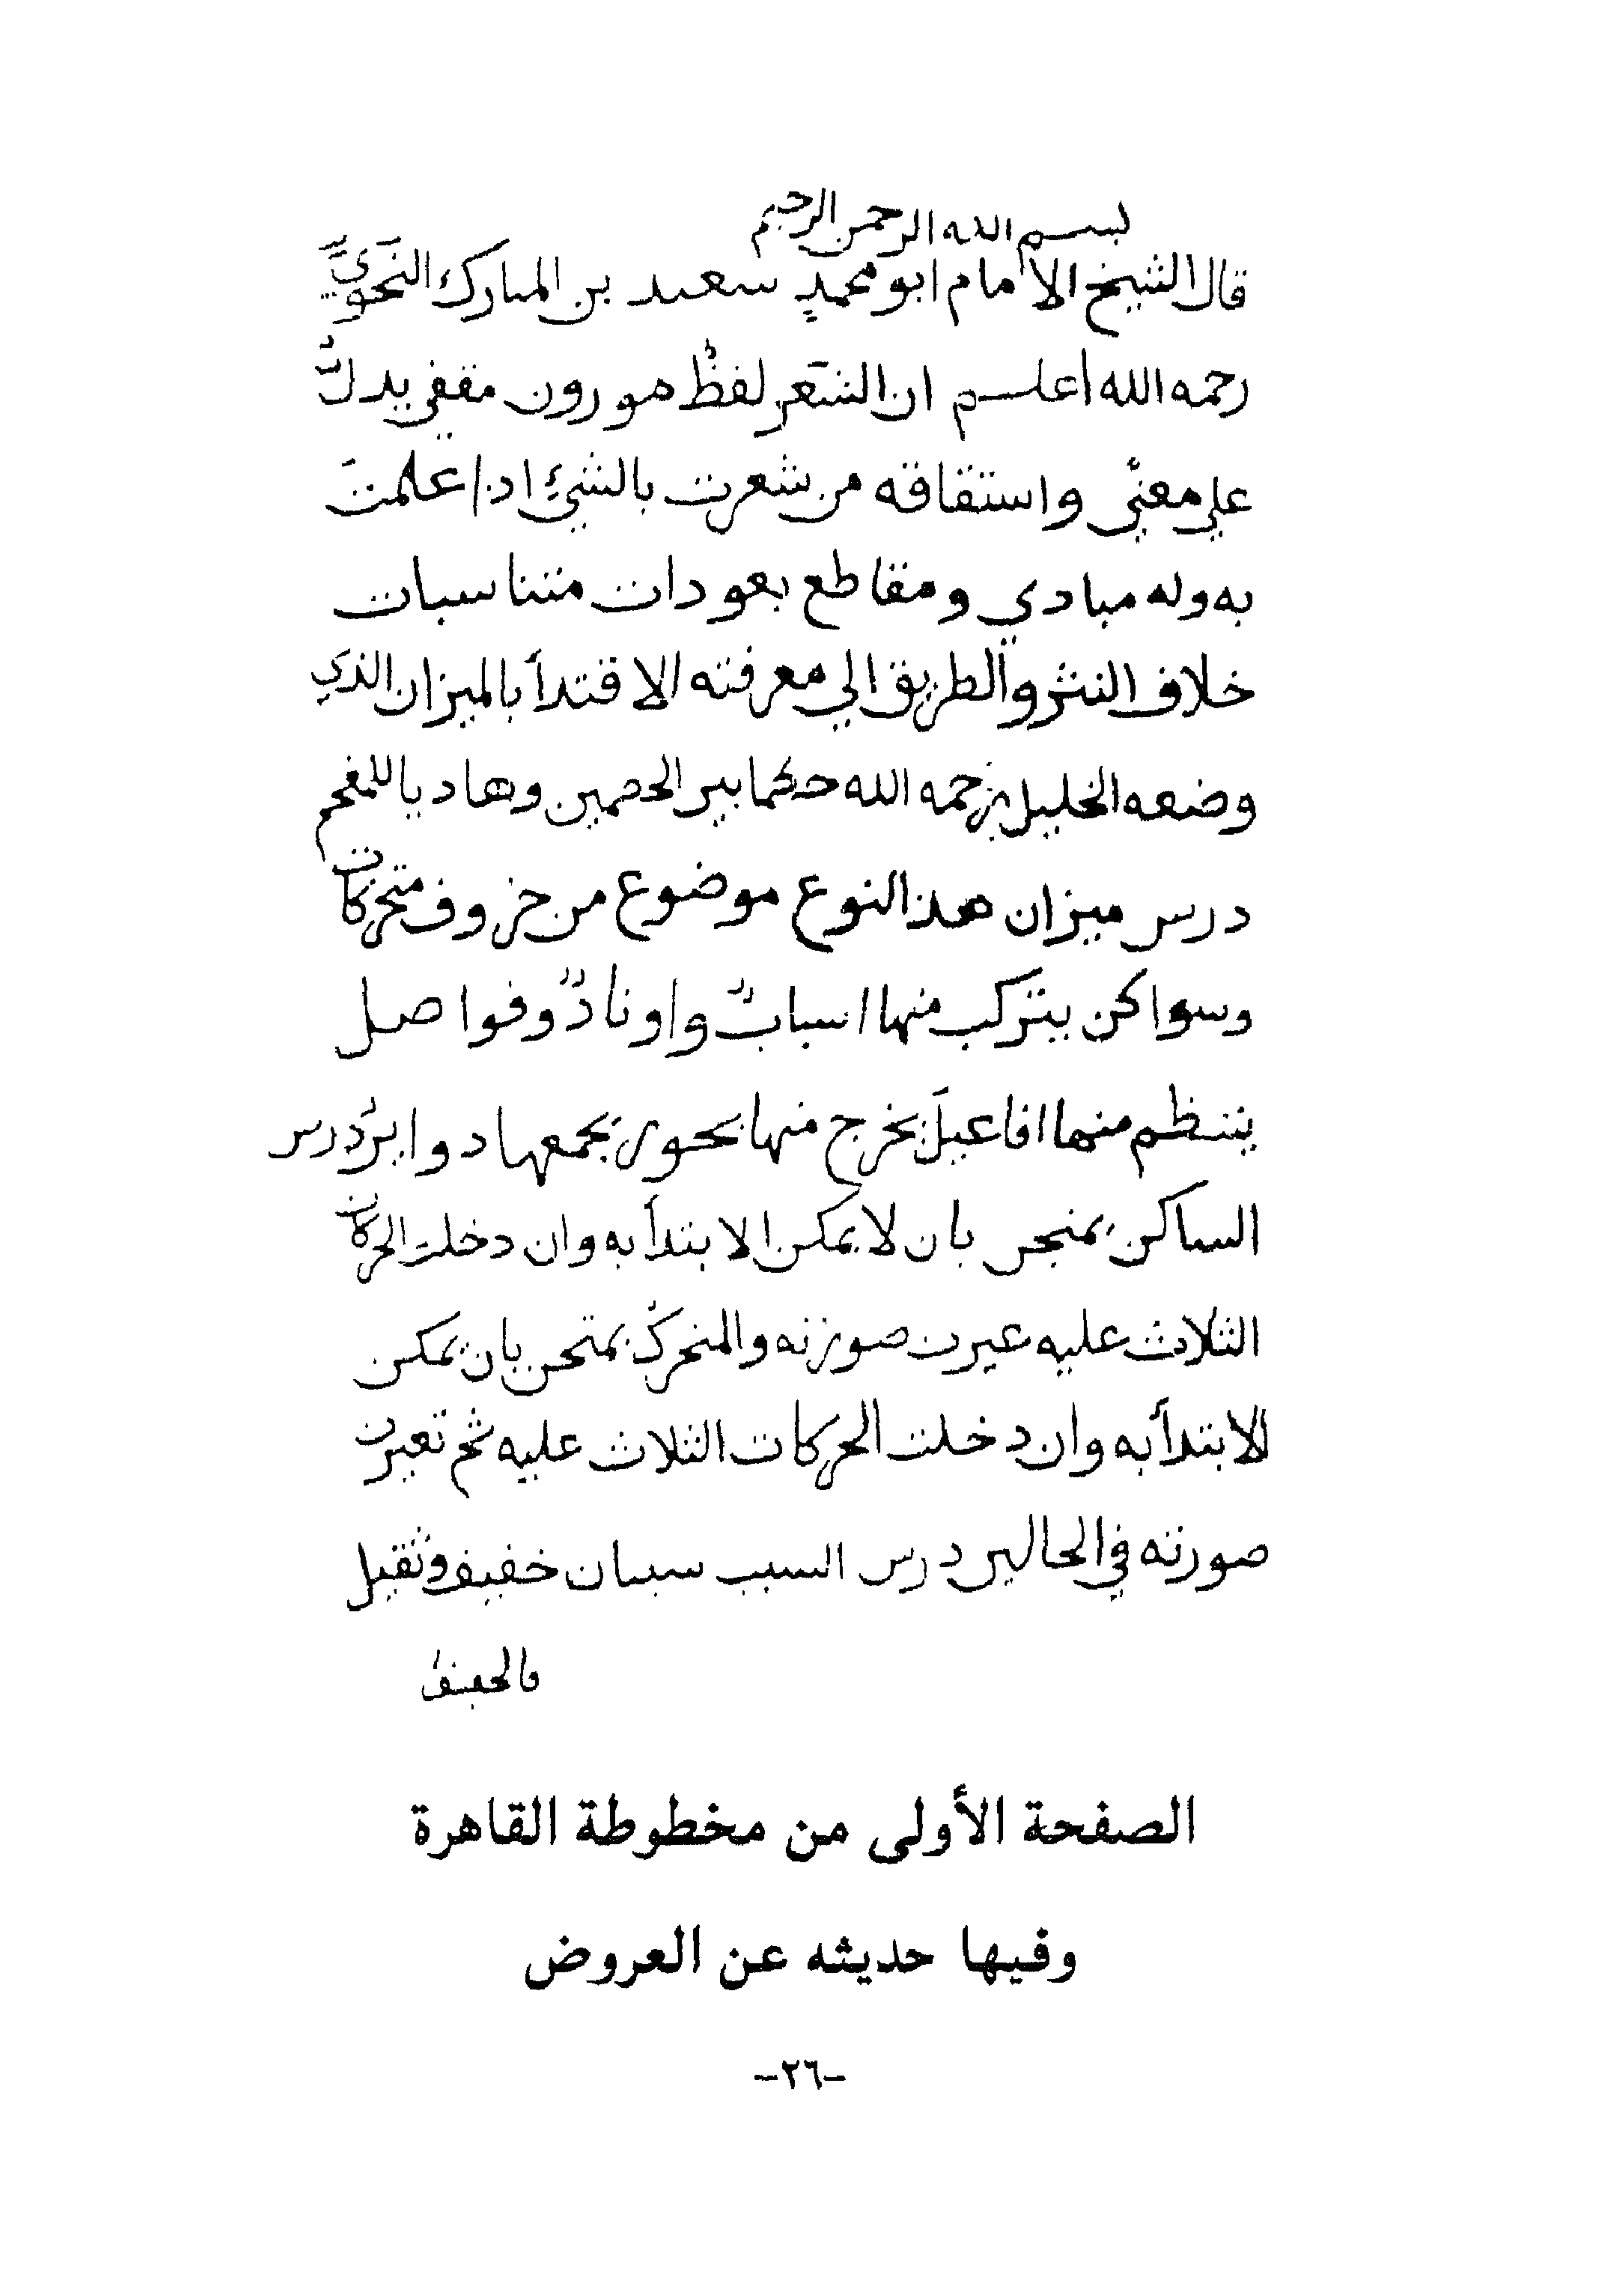 بسم الله الرحمن الرحيم
قال الشيخ الامام ابو محمدٍ سعيد بن المبارك النَحويّ
رحمه الله اعلم ان الشعر لفظٌ موزون مقفي يدلُ
علي معنًي واشتقاقه من شعرت بالشيءِ اذا علمتَ
به وله مبادي ومقاطع بعودات متناسبات
خلاف النثر والطريق الي معرفته الاقتدأ بالميزان الذي
وضعه الخليل رحمه الله حكما بين الخصمين وهاديا للمفحم
درس ميزان هذا النوع موضوع من حروف متحركات
وسواكن يتركب منها اسبابٌ واوتادٌ وفواصل
ينتظم منها افاعيلَ يخرج منها بحور يجمعها دوايرُ درس
الساكن يمتحن بان لا يمكن الابتدأ به وان دخلت الحركات
الثلاث عليه غيرت صورته والمتحركُ يمتحن بان يمكن
الابتدأ به وان دخلت الحركات الثلاث عليه تغيرت
صورته في الحالين درس السبب سببان خفيف وثقيل
فالخفيفُ
الصفحة الأولى من مخطوطة القاهرة
وفيها حديثه عن العروض
-٢٦-